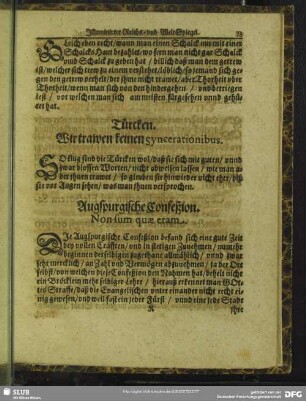 Historischer Reiches, und Welt-Spiegel. 73
Gleich eben recht, wann man einen Schalck nur mit einer
Schalcks Haut bezahlet, wo fern man nicht gar Schalck
vmb Schalck zu geben hat, billich daß man dem getrew
ist, welcher sich trew zu einem verstehet, löblich, so jemand sich ge-
gen den getrew verhelt, der jhme nicht trawet, aber Thorheit vber
Thorheit, wenn man sich von den hindergehen, vnd betriegen
lest, vor welchen man sich am meisten fürgesehen vnnd gehü-
tet hat.
Türcken.
Wir trawen keinen syncerationibus.
SO klug sind die Türcken wol, daß sie sich mit guten, vnnd
zwar blossen Worten, nicht abweisen lassen, wie man a-
ber jhnen trawet, so glauben sie hinwieder nicht eher, biß
sie vor Augen sehen, was man jhnen versprochen.
Augspurgische Confeßion.
Non sum quæ eram.
DIe Augspurgische Confeßion befand sich eine gute Zeit
bey vollen Kräfften, vnd in stetigen Zunehmen, nunmehr
beginnen derselbigen zugethane allmählich, vnnd zwar
sehr mercklich, an Zahl vnd Vermögen abzunehmen, ja der Ort
selbst, von welchen diese Confeßion den Nahmen hat, behelt nicht
ein Bröcklein mehr selbiger Lehre, hierauß erkennet man GOt-
tes Straffe, daß die Evangelischen unter einander nicht recht ei-
nig gewesen, vnd weil fast ein jeder Fürst, vnnd eine jede Stadt
K ihre
SLUB
Wir führen Wissen.
Gefördert von der
Deutschen Forschungsgemeinschaft
DFG